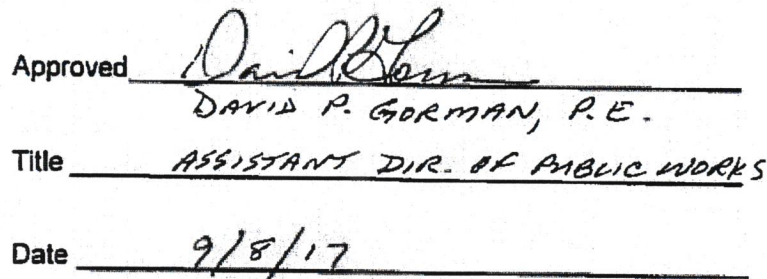 Approved David P. Gorman
DAVID P. GORMAN, P.E.
Title ASSISTANT DIR. OF PUBLIC WORKS
Date 9/8/17